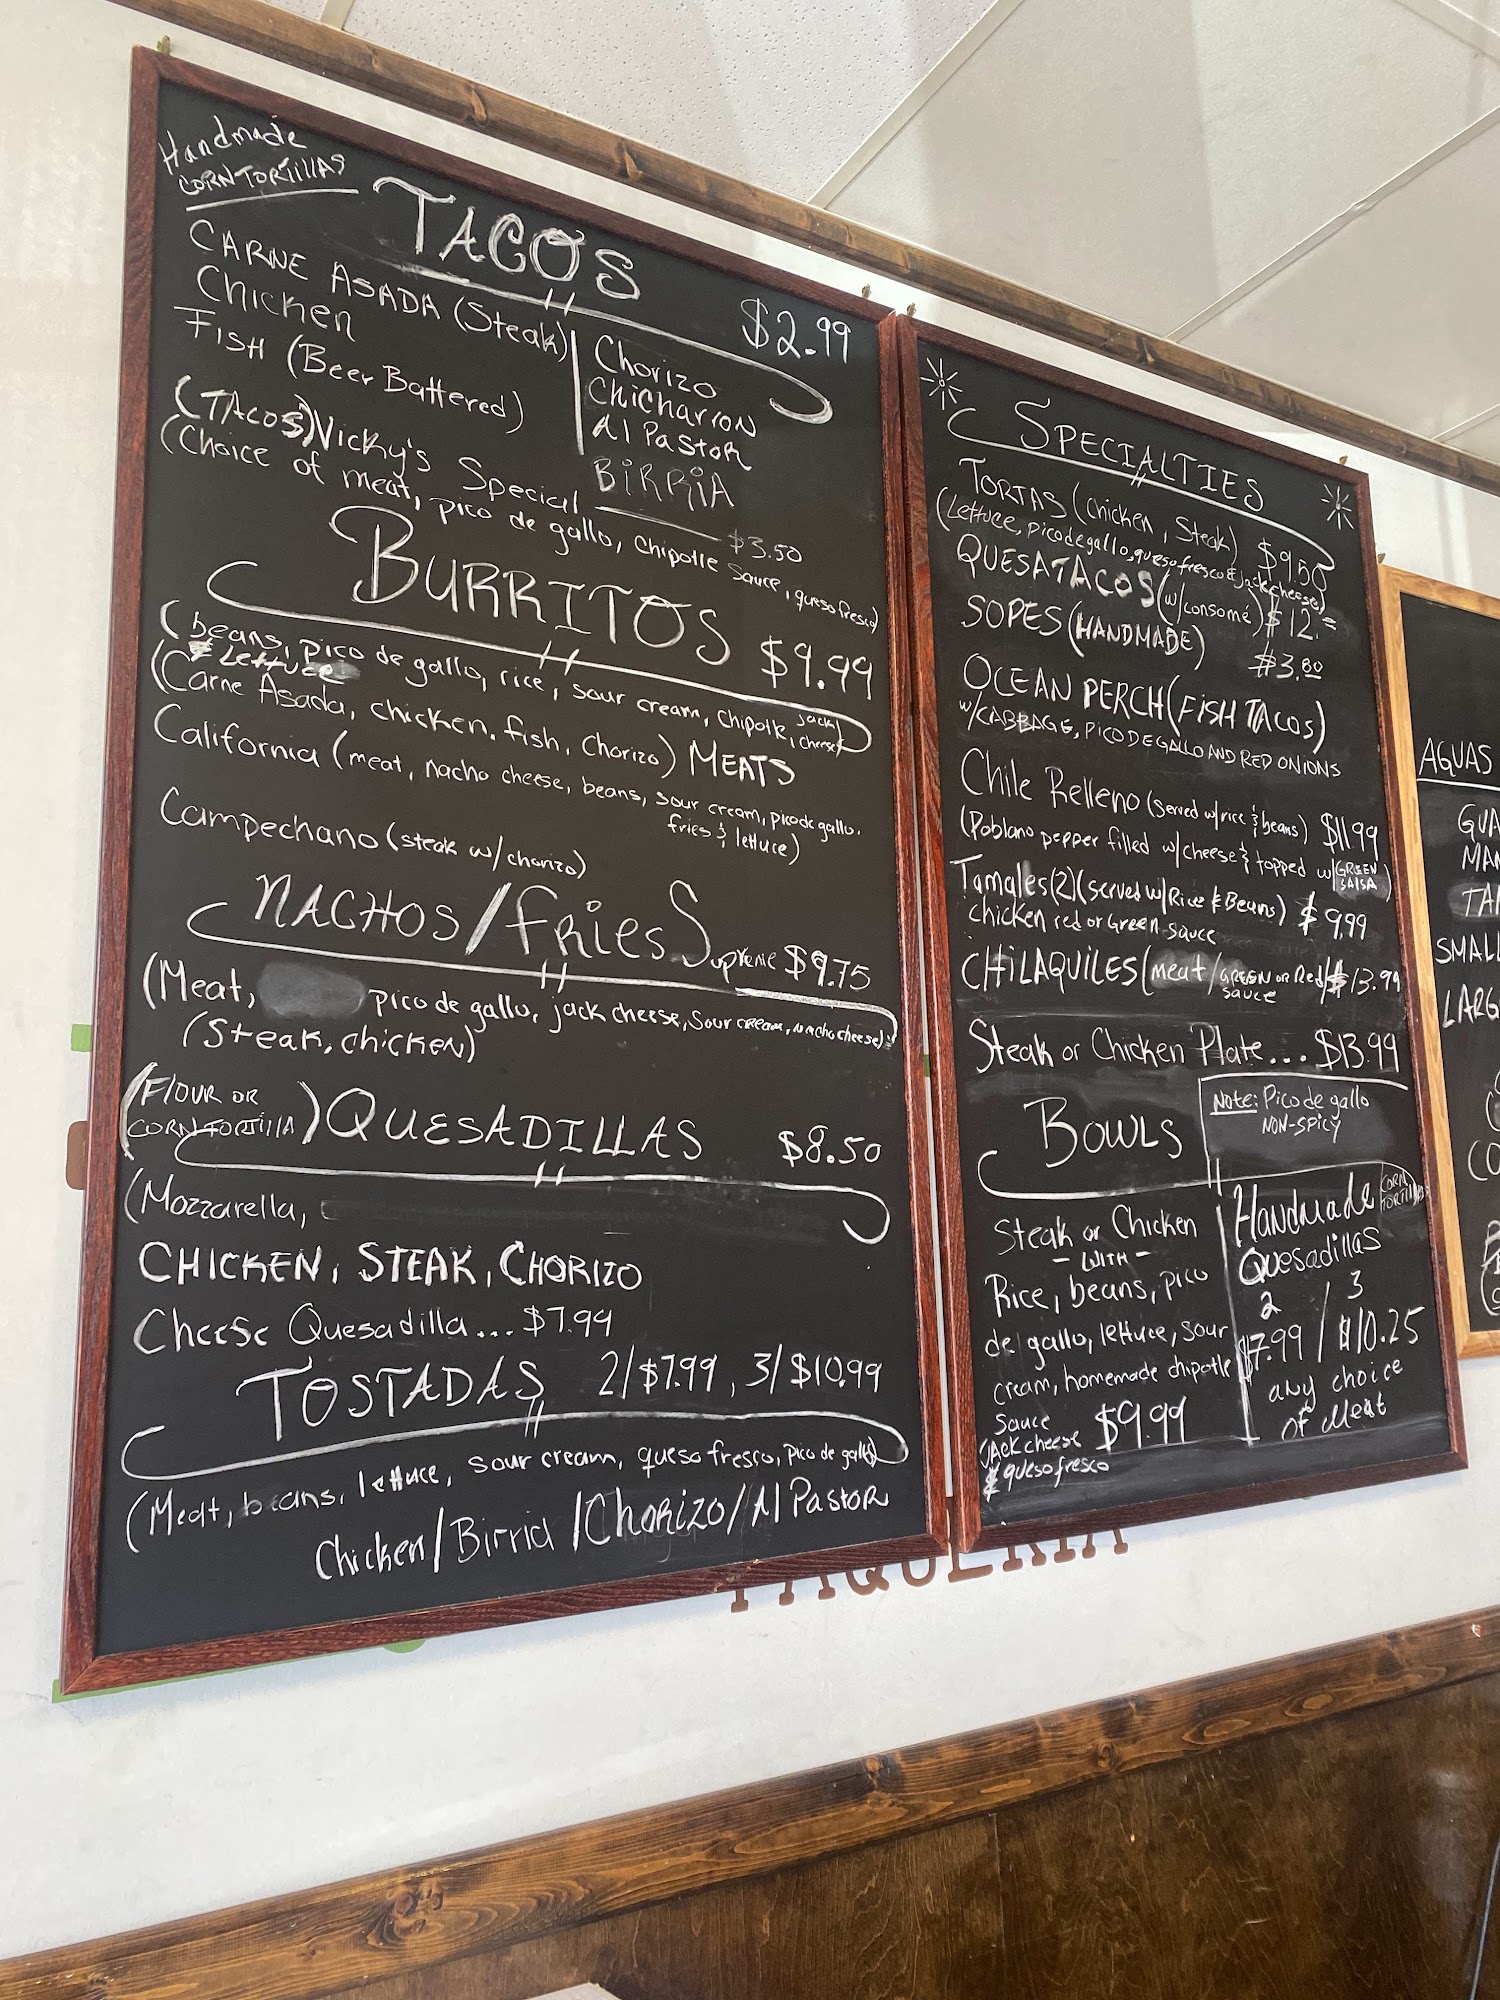 Handmade
CORN TORTILLAS
TACOS
$2.99
CARNE ASADA (Steak)
Chicken
FISH (Beer Battered)
Chorizo
Chicharron
Al Pastor
BIRRIA
(TACOS) Vicky's Special $3.50
(Choice of meat, pico de gallo, Chipotle Sauce, queso fresco)
BURRITOS $9.99
(beans, pico de gallo, rice, sour cream, chipotle, jack cheese)
& Lettuce
(Carne Asada, chicken, fish, Chorizo) MEATS
California (meat, nacho cheese, beans, sour cream, pico de gallo,
fries & lettuce)
Campechano (steak w/ chorizo)
NACHOS/Fries Supreme $9.75
(Meat, pico de gallo, jack cheese, sour cream, nacho cheese)
(Steak, chicken)
(FLOUR OR
CORN TORTILLA) QUESADILLAS $8.50
(Mozzarella,
CHICKEN, STEAK, CHORIZO
Cheese Quesadilla... $7.99
TOSTADAS 2/$7.99, 3/$10.99
(Meat, beans, lettuce, sour cream, queso fresco, pico de gallo)
Chicken/Birria/Chorizo/Al Pastor
SPECIALTIES
TORTAS (Chicken, Steak) $9.50
(Lettuce, pico de gallo, queso fresco & jack cheese)
QUESATACOS (w/consomé) $12.=
SOPES (HANDMADE) $3.80
OCEAN PERCH (FISH TACOS)
W/CABBAGE, PICO DE GALLO AND RED ONIONS
Chile Relleno (served w/rice & beans) $11.99
(Poblano pepper filled w/cheese & topped w/GREEN SALSA)
Tamales (2) (served w/Rice & Beans) $9.99
chicken red or Green sauce
CHILAQUILES (meat/GREEN OR Red sauce) $13.99
Steak or Chicken Plate... $13.99
BOWLS
Note: Pico de gallo
NON-SPICY
Steak or Chicken
- WITH -
Rice, beans, pico
de gallo, lettuce, sour
cream, homemade chipotle
Sauce
JACK cheese $9.99
& queso fresco
Handmade CORN TORTILLAS
Quesadillas
2 / 3
$7.99 / $10.25
any choice
of Meat
AGUAS
SMALL
TAQUERIA